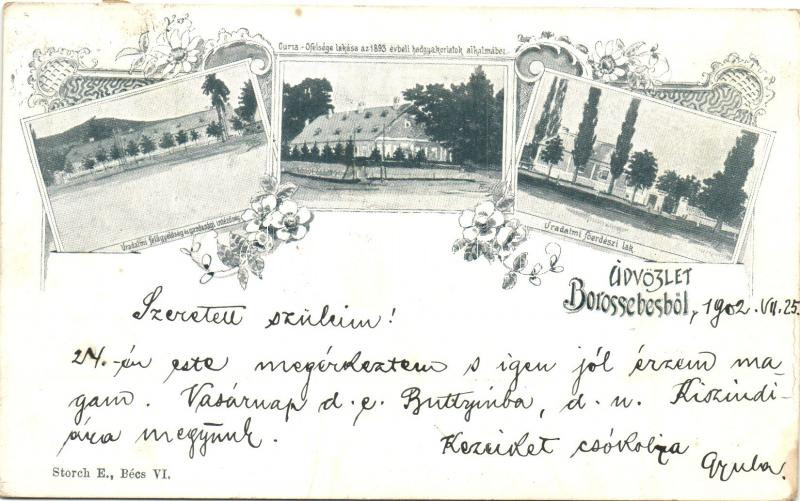 Curia - Őfelsége lakása az 1893 évbeli hadgyakorlatok alkalmából.
Uradalmi felügyelőség és gazdasági intézőség
Uradalmi főerdészi lak.
ÜDVÖZLET
Borossebesből, 1902.VII.25.
Szeretett szüleim!
24.-én este megérkeztem s igen jól érzem ma-
gam. Vasárnap d. e. Buttyinba, d. n. Kiszindi-
ára megyünk.
Kezeiket csókolja
Gyula.
Storch E., Bécs VI.